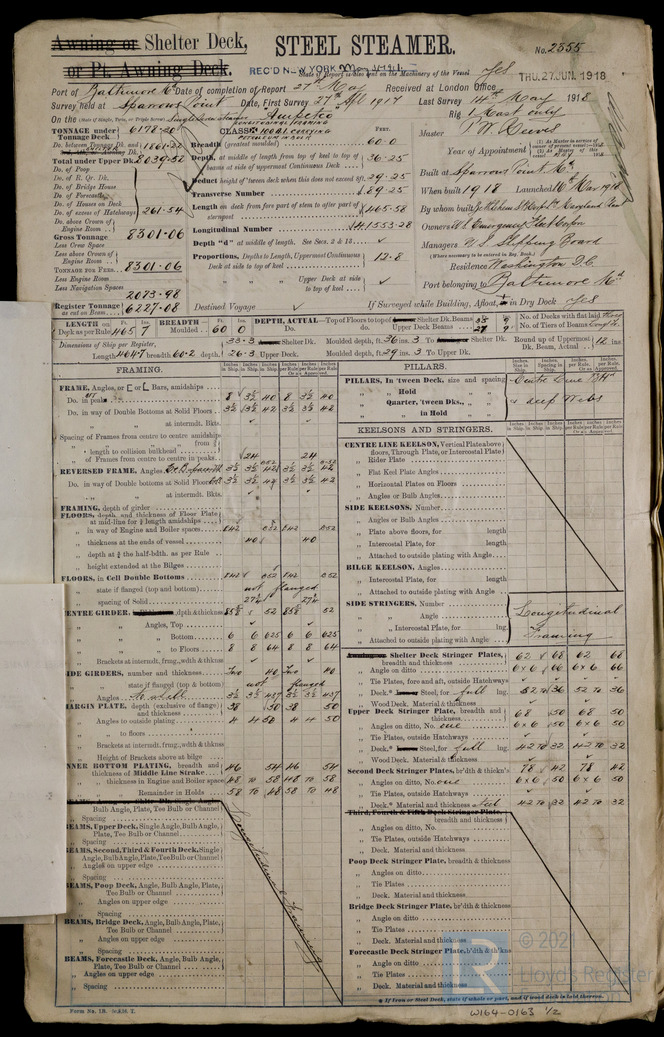 Awning or Shelter Deck,
or Pt. Awning Deck.
STEEL STEAMER.
No. 2355
REC'D NEW YORK May 1918
State of Report is also sent on the Machinery of the Vessel Yes
THU. 27 JUN. 1918
Port of Baltimore Md Date of completion of Report 27th May Received at London Office
Survey held at Sparrows Point Date, First Survey 27th Apl 1917 Last Survey 14th May 1918
On the (State if Single, Twin, or Triple Screw) Single Screw Steamer
Rig 1 Mast only
TONNAGE under Tonnage Deck 6178.20
Do. between Tonnage Dk. and 1861.22
Total under Upper Dk. 8039.52
Do. of Poop
Do. of R. Qr. Dk.
Do. of Bridge House
Do. of Forecastle
Do. of Houses on Deck
Do. of excess of Hatchways 261.54
Do. above Crown of Engine Room
Gross Tonnage 8301.06
Less Crew Space
Less above Crown of Engine Room
TONNAGE FOR FEES 8301.06
Less Engine Room
Less Navigation Spaces
2073.98
Register Tonnage as cut on Beam 6227.08
CLASS 100A1
FEET.
Breadth (greatest moulded) 60.0
Depth, at middle of length from top of keel to top of beams at side of uppermost Continuous Deck 36.25
Deduct height of 'tween deck when this does not exceed 8ft. 29.25
Transverse Number 89.25
Length on deck from fore part of stem to after part of sternpost 465.58
Longitudinal Number 41553.28
Depth "d" at middle of length. See Secs. 2 & 13
Proportions, Depths to Length, Uppermost Continuous Deck at side to top of keel 12.8
" " Upper Deck at side to top of keel
Destined Voyage
Master
Year of Appointment
Built at Sparrows Point Md
When built 1918 Launched 10th Mar 1918
By whom built
Owners
Managers U S Shipping Board
(Where necessary to be entered in Reg. Book.)
Residence Washington D.C.
Port belonging to Baltimore Md
If Surveyed while Building, Afloat, or in Dry Dock Yes
LENGTH on Deck as per Rule 465 7
BREADTH Moulded 60 0
DEPTH, ACTUAL—Top of Floors to top of Shelter Dk. Beams
Do. do. Upper Deck Beams
No. of Decks with flat laid
No. of Tiers of Beams
Dimensions of Ship per Register,
Length 464.7 breadth 60.2 depth 26.3
33.3 Shelter Dk.
Upper Dk.
Moulded depth, 36 ins. 3 To Shelter Dk.
Moulded depth, ft. 29 ins. 3 To Upper Dk.
Round up of Uppermost Dk. Beam, Actual 12 ins.
FRAMING.
FRAME, Angles, or E or L Bars, amidships
Do. in peaks 8 3½ 40 8 3½ 40
Do. in way of Double Bottoms at Solid Floors 3½ 3½ 42 3½ 3½ 42
" " at intermdt. Bkts.
Spacing of Frames from centre to centre amidships
" " from ⅕ length to collision bulkhead
" of Frames from centre to centre in peaks 24 24
REVERSED FRAME, Angles 3½ 3½ 42 3½ 3½ 42
Do. in way of Double Bottoms at Solid Floors
" " at intermdt. Bkts.
FRAMING, depth of girder
FLOORS, depth and thickness of Floor Plate at mid-line for ½ length amidships
" in way of Engine and Boiler spaces
" thickness at the ends of vessel 40 40
" depth at ¾ the half-bdth. as per Rule
" height extended at the Bilges
FLOORS, in Cell Double Bottoms
" state if flanged (top and bottom) not flanged
" spacing of Solid 27½ 27½
CENTRE GIRDER, depth & thickness
" " Angles, Top
" " " Bottom 6 6 625 6 6 625
" " " to Floors 8 8 64 8 8 64
" Brackets at intermdt. frmg., wdth & thknss
SIDE GIRDERS, number and thickness Two 40 Two 40
" state if flanged (top & bottom) not flanged
" Angles
MARGIN PLATE, depth (exclusive of flange) and thickness 38 50 38 50
" Angles to outside plating 4 4 50 4 4 50
" " to floors
" Brackets at intermdt. frmg., wdth & thknss
" Height of Brackets above at bilge
INNER BOTTOM PLATING, breadth and thickness of Middle Line Strake 46 54 46 54
" thickness in Engine and Boiler space 48 to 58 48 to 58
" Remainder in Holds 58 to 48 50 to 48
BEAMS, Shltr. Dk. Single Angle, Bulb Angle, Plate, Tee Bulb or Channel
" Spacing
BEAMS, Upper Deck, Single Angle, Bulb Angle, Plate, Tee Bulb or Channel
" Spacing
BEAMS, Second, Third & Fourth Deck, Single Angle, Bulb Angle, Plate, Tee Bulb or Channel
" Angles on upper edge
" Spacing
BEAMS, Poop Deck, Angle, Bulb Angle, Plate, Tee Bulb or Channel
" Angles on upper edge
" Spacing
BEAMS, Bridge Deck, Angle, Bulb Angle, Plate, Tee Bulb or Channel
" Angles on upper edge
" Spacing
BEAMS, Forecastle Deck, Angle, Bulb Angle, Plate, Tee Bulb or Channel
" Angles on upper edge
" Spacing
Longitudinal Framing
PILLARS.
PILLARS, In 'tween Deck, size and spacing Centre Line Blkd
" Hold " & deep Webs
" Quarter, 'tween Dks., "
" " in Hold "
KEELSONS AND STRINGERS.
CENTRE LINE KEELSON, Vertical Plate above floors, Through Plate, or Intercostal Plate
" Rider Plate
" Flat Keel Plate Angles
" Horizontal Plates on Floors
" Angles or Bulb Angles
SIDE KEELSONS, Number
" Angles or Bulb Angles
" Plate above floors, for length
" Intercostal Plate, for length
" Attached to outside plating with Angle
BILGE KEELSON, Angles
" Intercostal Plate, for length
" Attached to outside plating with Angle
SIDE STRINGERS, Number Longitudinal
" Angle &
" Intercostal Plate, for lng. Framing
" Attached to outside plating with Angle
Shelter Deck Stringer Plates, breadth and thickness 62 68 62 68
" Angle on ditto 6 x 6 66 6 x 6 66
" Tie Plates, fore and aft, outside Hatchways
" Deck.* Steel, for full lng. 52 to 36 52 to 36
" Wood Deck. Material & thickness
Upper Deck Stringer Plate, breadth and thickness 68 50 68 50
" Angles on ditto, No. one 6 x 6 50 6 x 6 50
" Tie Plates, outside Hatchways
" Deck.* Steel, for full lng. 42 to 32 42 to 32
" Wood Deck. Material & thickness
Second Deck Stringer Plates, br'dth & thickn's 78 42 78 42
" Angles on ditto, No. one 6 x 6 50 6 x 6 50
" Tie Plates, outside Hatchways
" Deck.* Material and thickness Steel 42 to 32 42 to 32
Third, Fourth & Fifth Deck Stringer Plate, breadth and thickness
" Angles on ditto, No.
" Tie Plates, outside Hatchways
" Deck. Material and thickness
Poop Deck Stringer Plate, breadth & thickness
" Angles on ditto
" Tie Plates
" Deck. Material and thickness
Bridge Deck Stringer Plate, br'dth & thickness
" Angle on ditto
" Tie Plates
" Deck. Material and thickness
Forecastle Deck Stringer Plate, b'dth & th'kns
" Angle on ditto
" Tie Plates
" Deck. Material and thickness
* If Iron or Steel Deck, state if whole or part, and if wood deck is laid thereon.
© 2021
Lloyd's Register
Foundation
Form No. 1B.
W164-0163 1/2